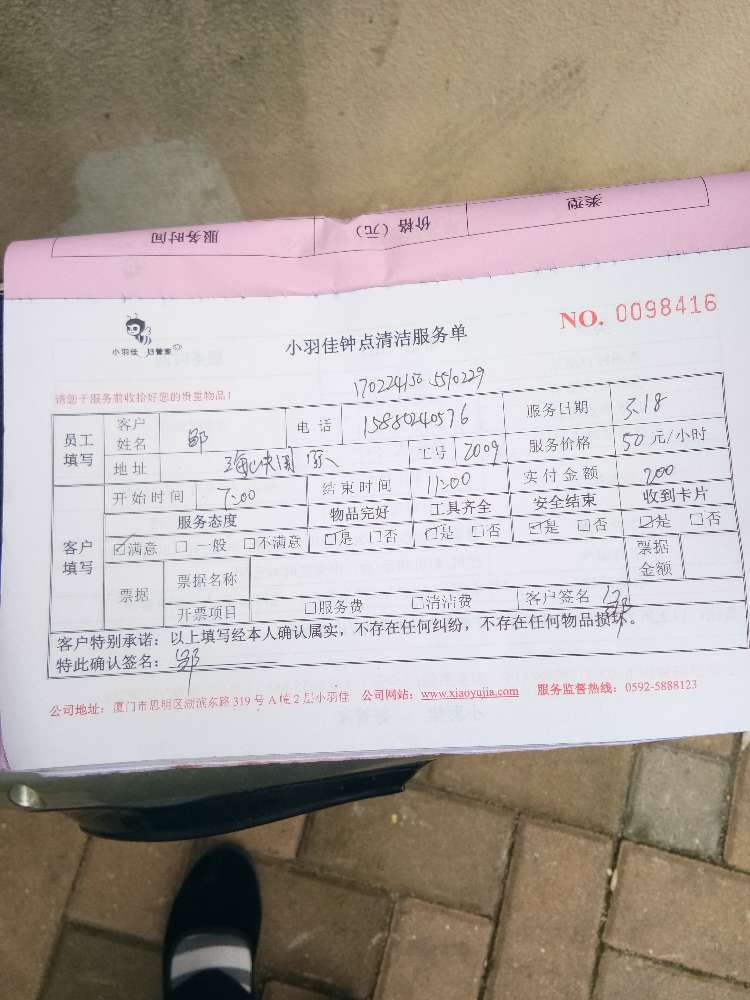 服务时间 价格（元） 类型
小羽佳 好管家
小羽佳钟点清洁服务单
NO. 0098416
请您于服务前收拾好您的贵重物品！
170224150 5510229
员工填写 客户姓名 邹 电话 15880240576 服务日期 3.18
地址 工号 2009 服务价格 50元/小时
客户填写 开始时间 7:00 结束时间 11:00 实付金额 200
服务态度 物品完好 工具齐全 安全结束 收到卡片
☑满意 □一般 □不满意 ☑是 □否 ☑是 □否 ☑是 □否 ☑是 □否
票据 票据名称 票据金额
开票项目 □服务费 □清洁费 客户签名 邹
客户特别承诺：以上填写经本人确认属实，不存在任何纠纷，不存在任何物品损坏。
特此确认签名：邹
公司地址：厦门市思明区湖滨东路319号A幢2层小羽佳 公司网站：www.xiaoyujia.com 服务监督热线：0592-5888123